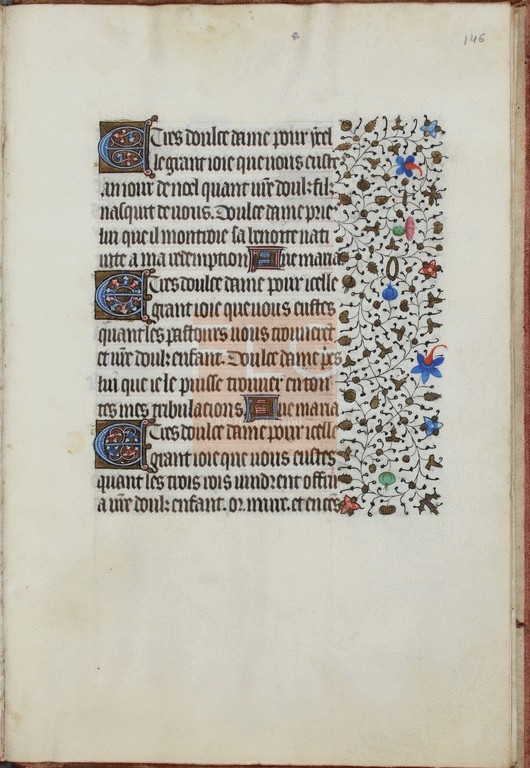 146
Tres doulce dame pour ycel
le grant ioie que vous eustes
au iour de noel quant vr̄e doulz filz
nasquit de vous. Doulce dame prie
lui que il montroie sa benoite nati
uite a ma redemption Aue maria
Tres doulce dame pour icelle
grant ioie que vous eustes
quant les pastours vous trouuerēt
et vr̄e doulz enfant. Doulce dame p̄es
lui que ie le puisse trouuer en tou
tes mes tribulacions Aue maria
Tres doulce dame pour icelle
grant ioie que vous eustes
quant les trois rois vindrent offrir
a vr̄e doulz enfant. or. mirre. et encēs